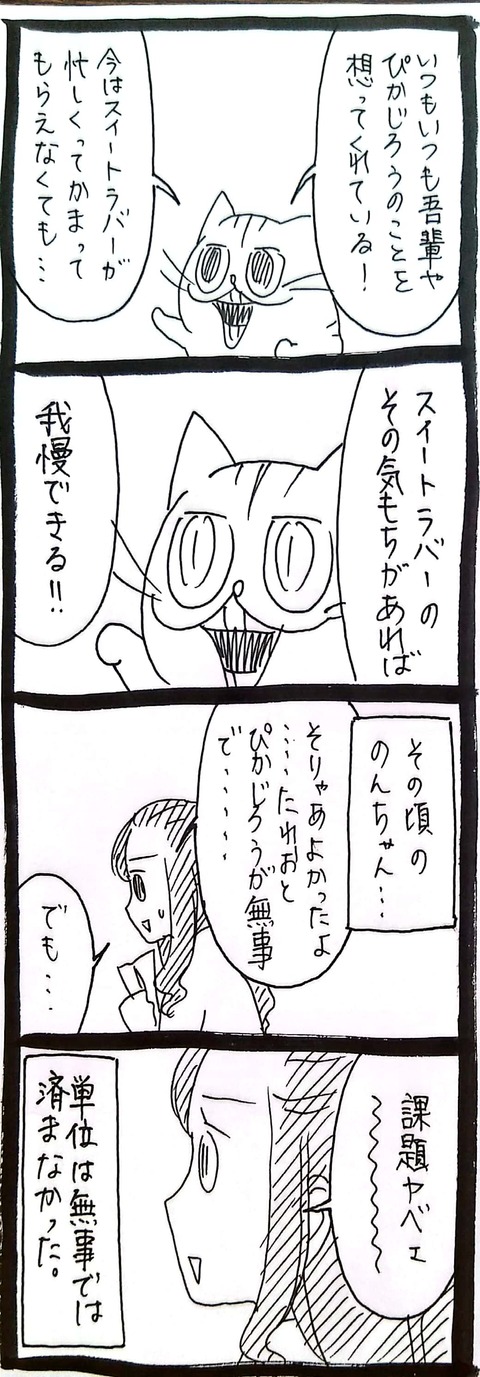 いつもいつも吾輩や
ぴかじろうのことを
想ってくれている!
今はスイートラバーが
忙しくってかまって
もらえなくても…
スイートラバーの
その気もちがあれば
我慢できる!!
その頃の
のんちゃん…
そりゃあよかったよ
……たれおと
ぴかじろうが無事
で……
でも…
課題ヤベェ
単位は無事では
済まなかった。